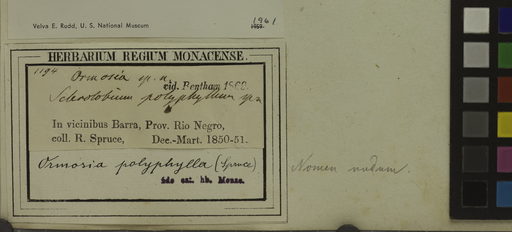 1961
Velva E. Rudd, U. S. National Museum
HERBARIUM REGIUM MONACENSE.
1194 Ormosia sp. n.
vid. Bentham
Sclerolobium polyphyllum sp. n
In vicinibus Barra, Prov. Rio Negro,
coll. R. Spruce, Dec.-Mart. 1850-51.
Ormosia polyphylla (Spruce)
fide cat. hb. Monac.
Nomen nudum.